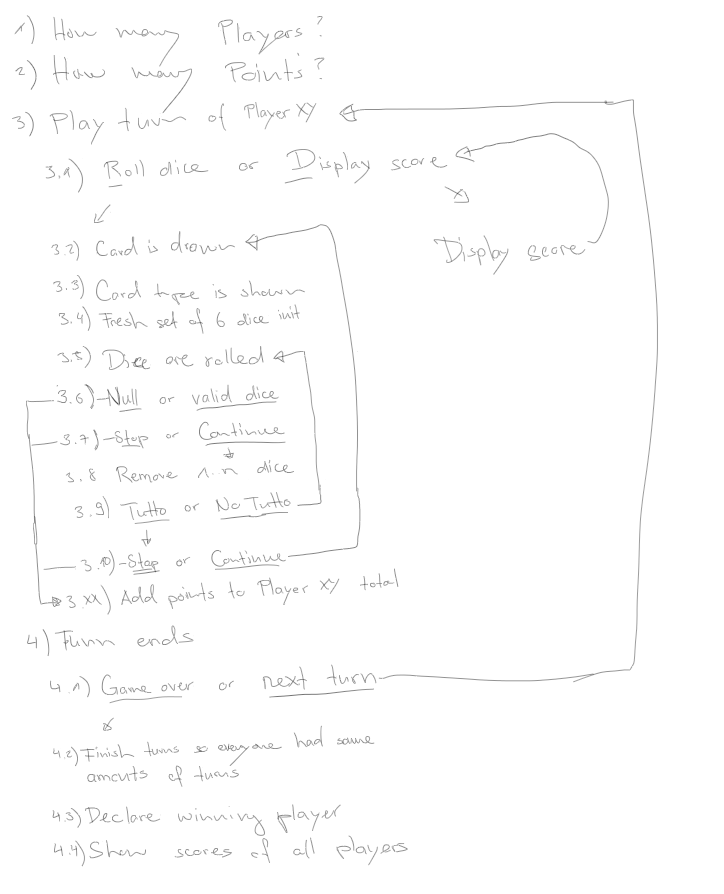 1) How many Players?
2) How many Points?
3) Play turn of Player XY
3.1) Roll dice or Display score
Display score
3.2) Card is drawn
3.3) Card type is shown
3.4) Fresh set of 6 dice init
3.5) Dice are rolled
3.6) Null or valid dice
3.7) Stop or Continue
3.8 Remove 1..n dice
3.9) Tutto or No Tutto
3.10) Stop or Continue
3.xx) Add points to Player XY total
4) Turn ends
4.1) Game over or next turn
4.2) Finish turns so everyone had same
amounts of turns
4.3) Declare winning player
4.4) Show scores of all players